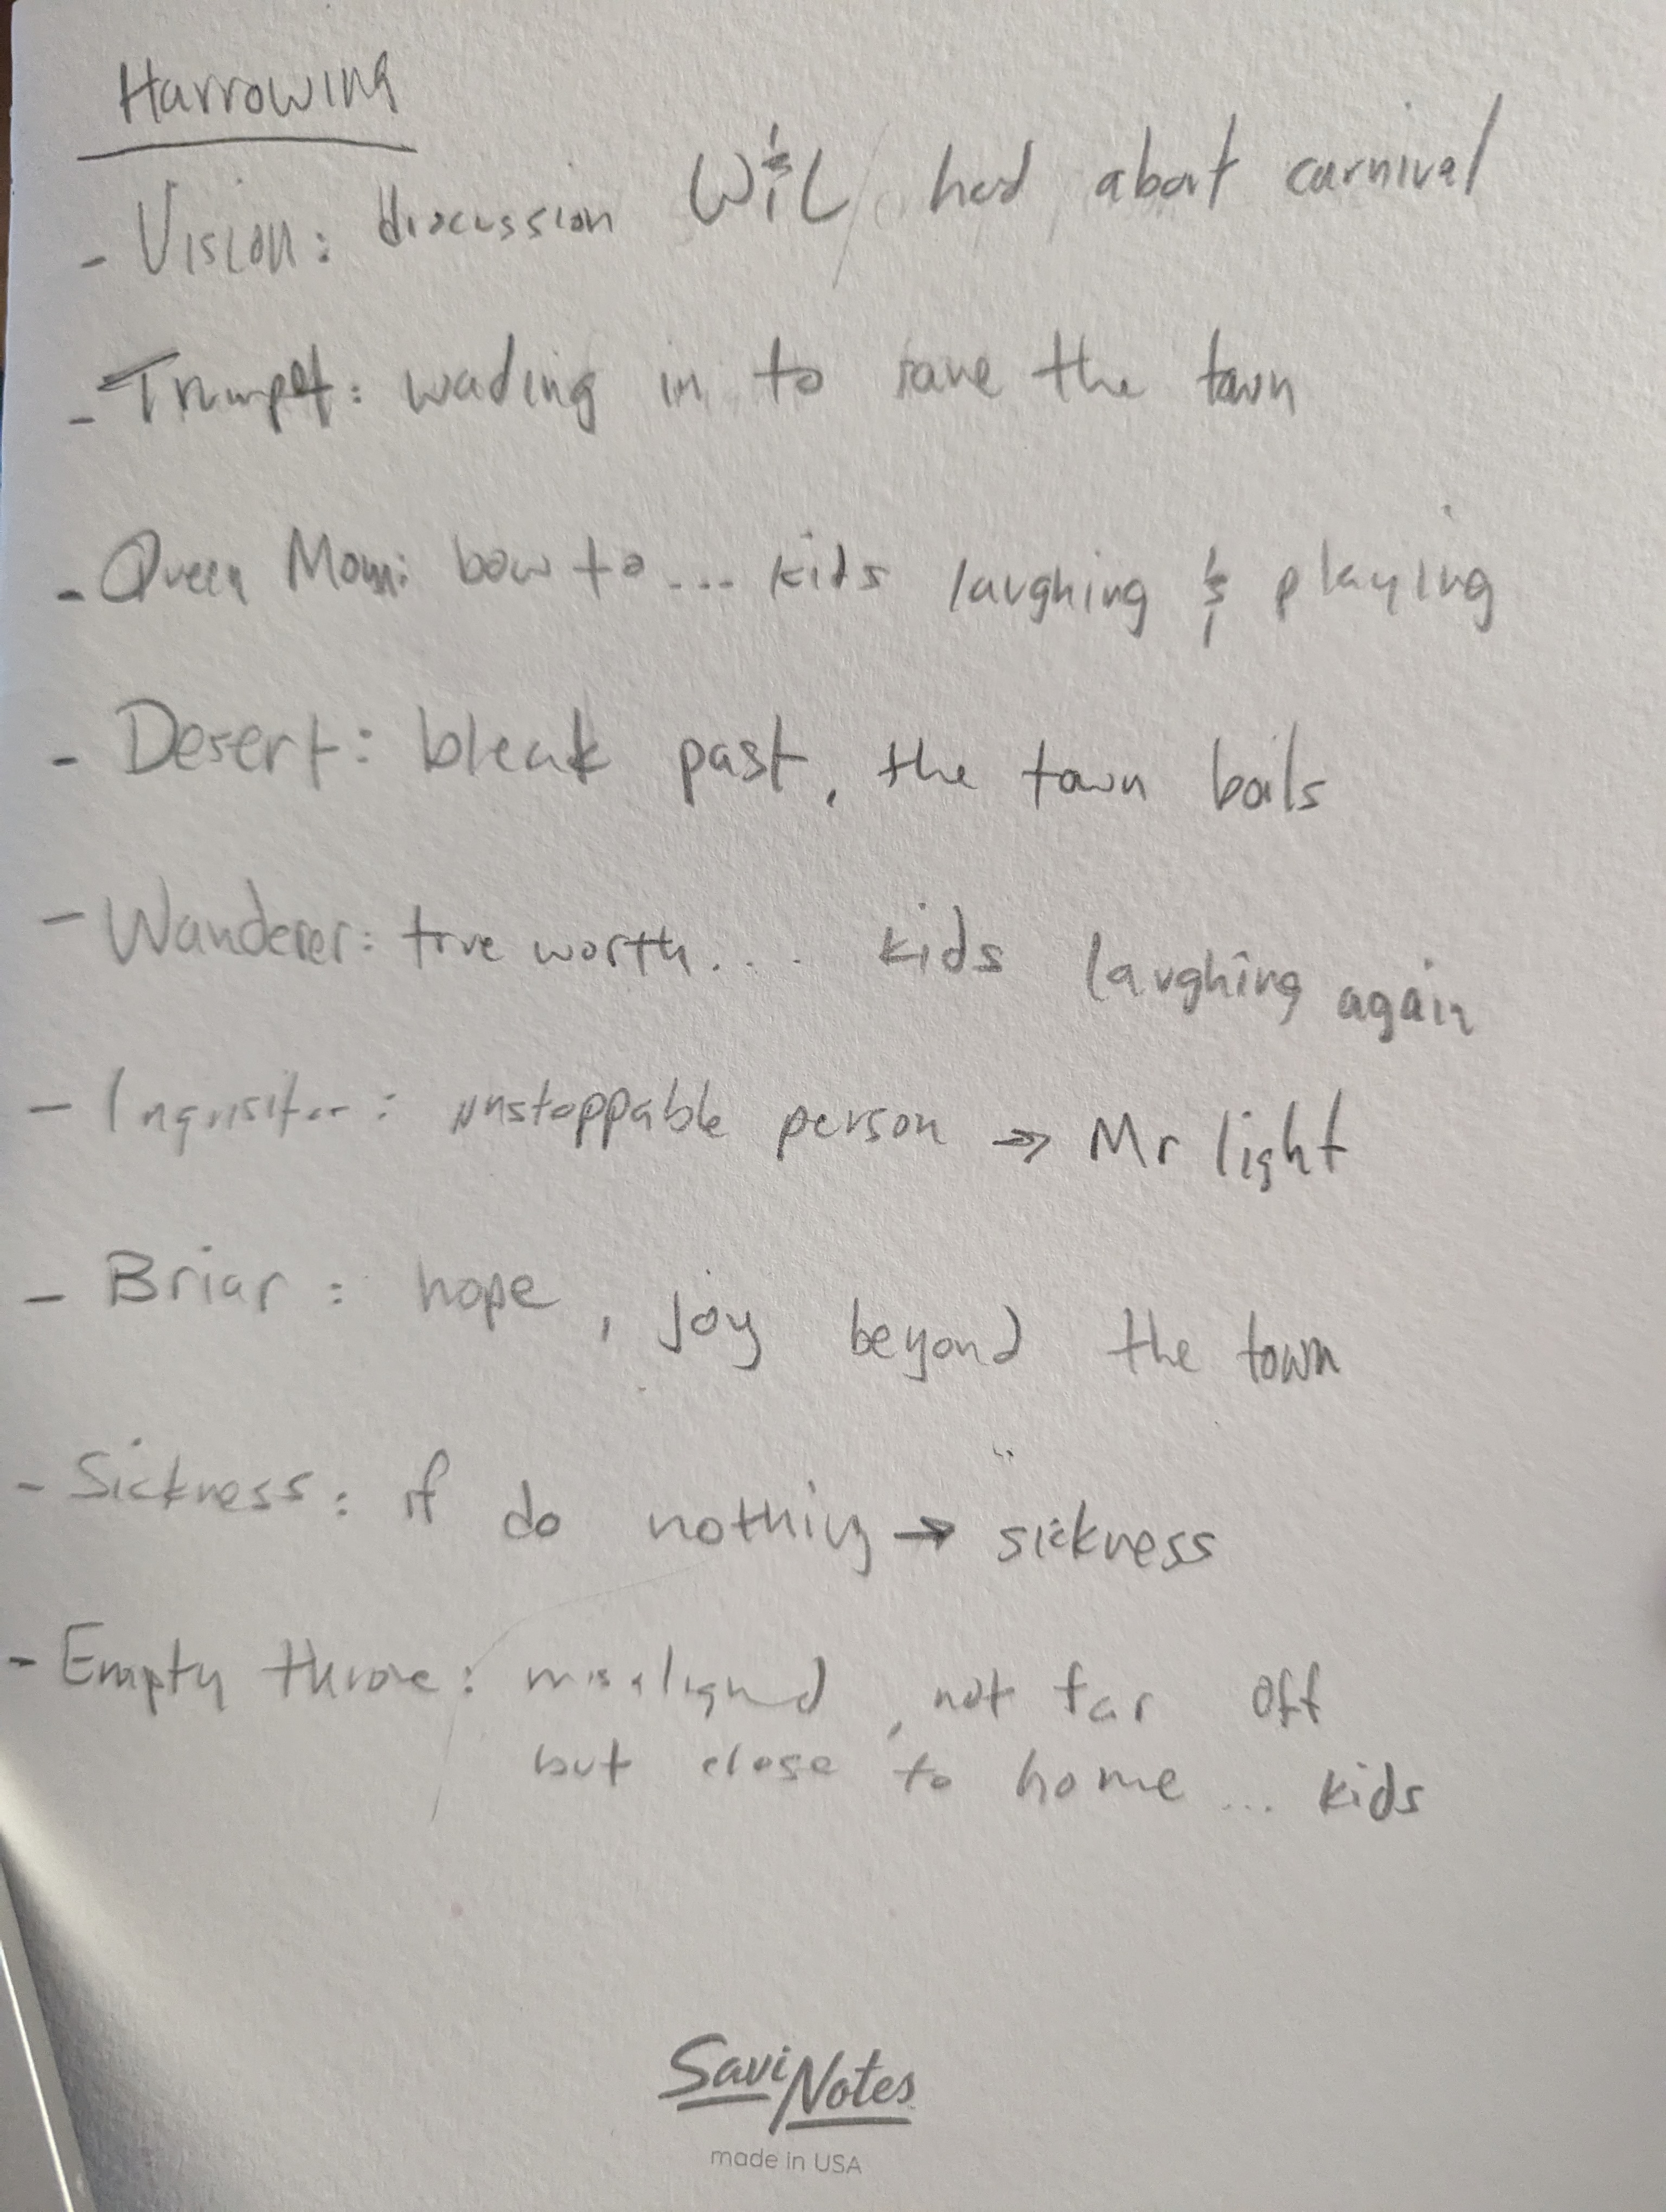 Harrowing
- Vision: discussion W & L had about carnival
- Trumpet: wading in to save the town
- Queen Mom: bow to... kids laughing & playing
- Desert: bleak past, the town boils
- Wanderer: true worth.... kids laughing again
- Inquisitor: unstoppable person → Mr light
- Briar: hope, joy beyond the town
- Sickness: if do nothing → sickness
- Empty throne: misaligned, not far off
but close to home... kids
SaviNotes
made in USA